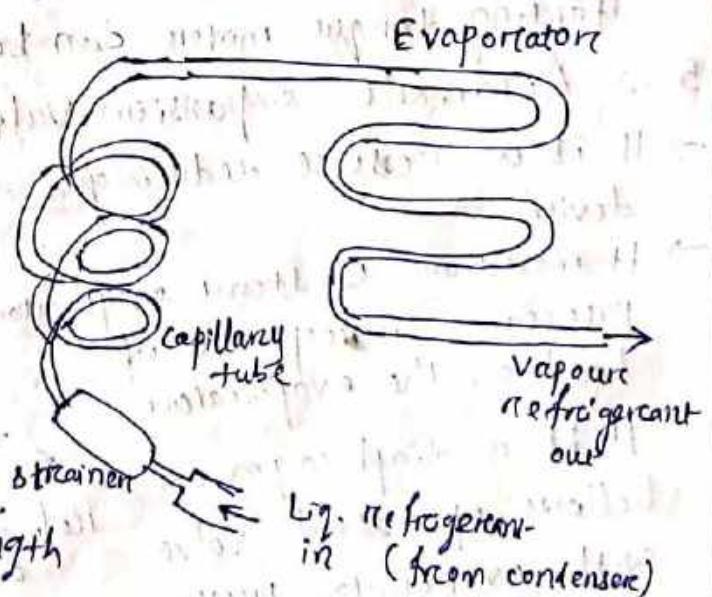 Evaporator
capillary
tube
Vapour
refrigerant
out
strainer
Liq. refrigerant
in (from condenser)